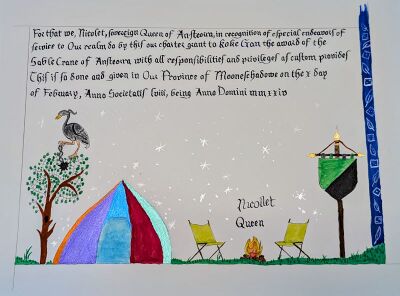 For that we, Nicolet, sovereign Queen of Ansteorra, in recognition of especial endeavors of
service to Our realm do by this our charter grant to Koke Cran the award of the
Sable Crane of Ansteorra with all responsibilities and privileges as custom provides
This is so done and given in Our Province of Mooneschadowe on the x day
of February, Anno Societatis lviii, being Anno Domini mmxxiv
Nicollet
Queen